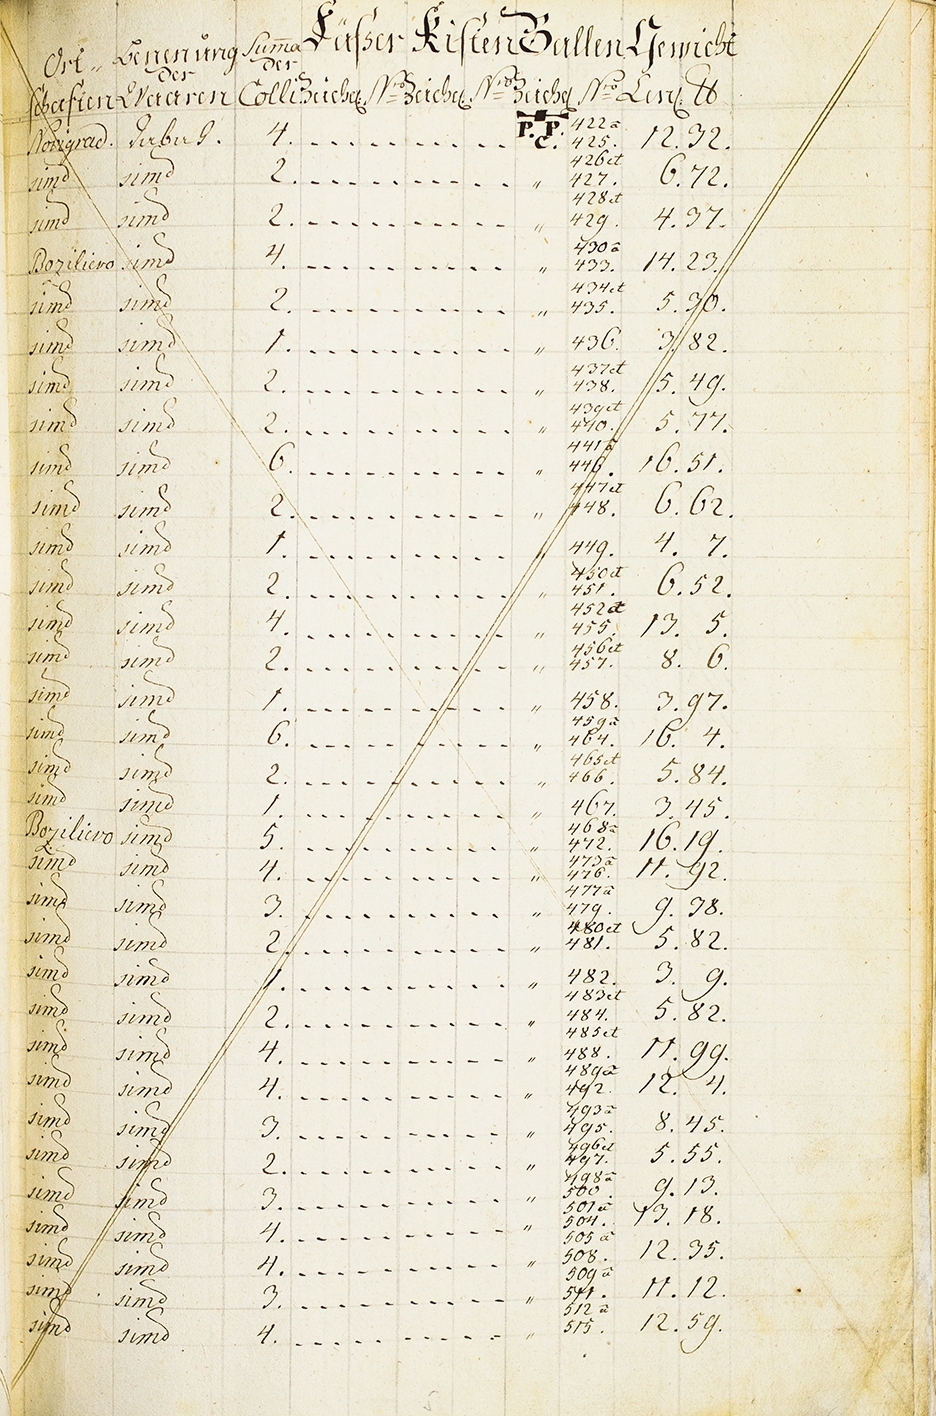 Ort„ Benenung Summa Fässer Kisten Ballen Gewicht
schaften der Waaren der Colli Zeiche Nro Zeiche Nro Zeiche Nro Cen. ℔
Novigrad. Tabac. 4. P. P. C. 422 a 425. 12. 32.
simd simd 2. „ 426 et 427. 6. 72.
simd simd 2. „ 428 et 429. 4. 37.
Bozilievo simd 4. „ 430 a 433. 14. 23.
simd simd 2. „ 434 et 435. 5. 30.
simd simd 1. „ 436. 3. 82.
simd simd 2. „ 437 et 438. 5. 49.
simd simd 2. „ 439 et 440. 5. 77.
simd simd 6. „ 441 a 446. 16. 51.
simd simd 2. „ 447 et 448. 6. 62.
simd simd 1. „ 449. 4. 7.
simd simd 2. „ 450 et 451. 6. 52.
simd simd 4. „ 452 et 455. 13. 5.
simd simd 2. „ 456 et 457. 8. 6.
simd simd 1. „ 458. 3. 97.
simd simd 6. „ 459 a 464. 16. 4.
simd simd 2. „ 465 et 466. 5. 84.
simd simd 1. „ 467. 3. 45.
Bozilievo simd 5. „ 468 a 472. 16. 19.
simd simd 4. „ 473 a 476. 11. 92.
simd simd 3. „ 477 a 479. 9. 38.
simd simd 2. „ 480 et 481. 5. 82.
simd simd 1. „ 482. 3. 9.
simd simd 2. „ 483 et 484. 5. 82.
simd simd 4. „ 485 et 488. 11. 99.
simd simd 4. „ 489 a 492. 12. 4.
simd simd 3. „ 493 a 495. 8. 45.
simd simd 2. „ 496 et 497. 5. 55.
simd simd 3. „ 498 a 500. 9. 13.
simd simd 4. „ 501 a 504. 13. 18.
simd simd 4. „ 505 a 508. 12. 35.
simd simd 3. „ 509 a 511. 11. 12.
simd simd 4. „ 512 a 515. 12. 59.